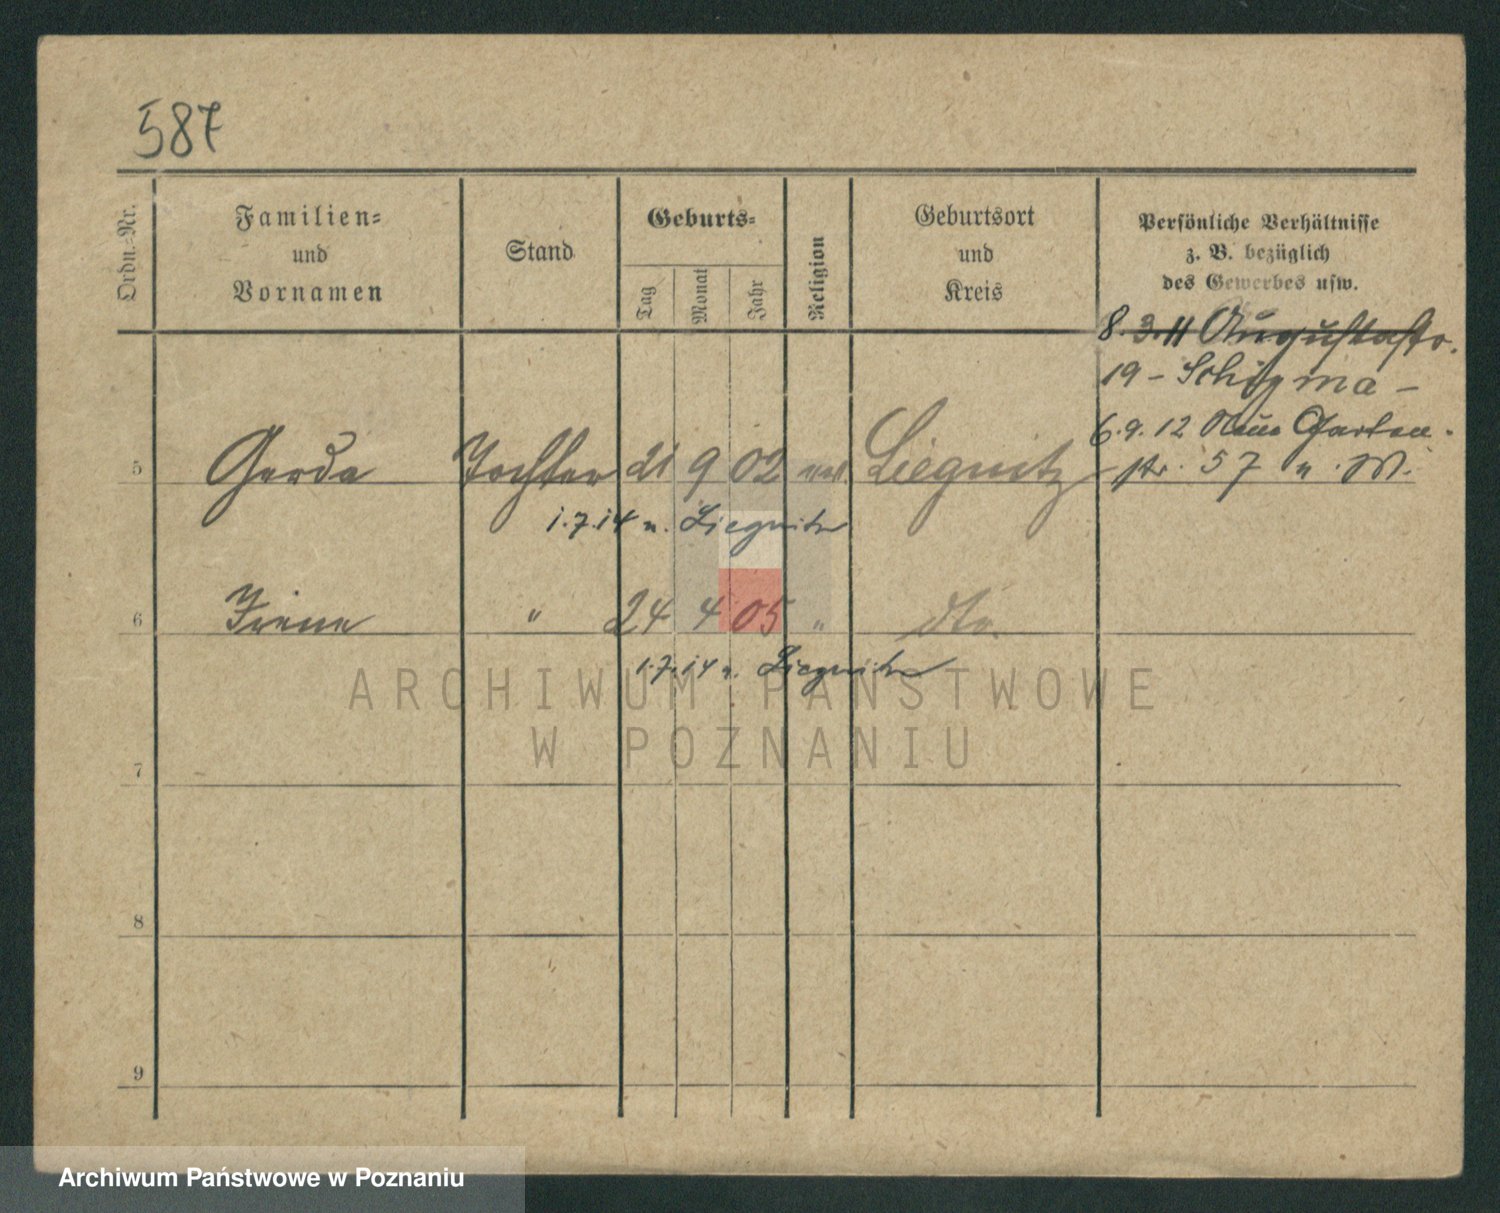 587
Ordn.=Nr.
Familien=
und
Vornamen
Stand
Geburts=
Tag
Monat
Jahr
Religion
Geburtsort
und
Kreis
Persönliche Verhältnisse
z. B. bezüglich
des Gewerbes usw.
8. 3. 11 Augustastr.
19 - Schigma -
6. 9. 12 Neue Garten-
str. 57 u. M.
5 Gerda Tochter 21 9 02 Liegnitz
1.7.14 n. Liegnitz
6 Irene " 24 4 05 " dto.
1.7.14 n. Liegnitz
ARCHIWUM PAŃSTWOWE
W POZNANIU
7
8
9
Archiwum Państwowe w Poznaniu